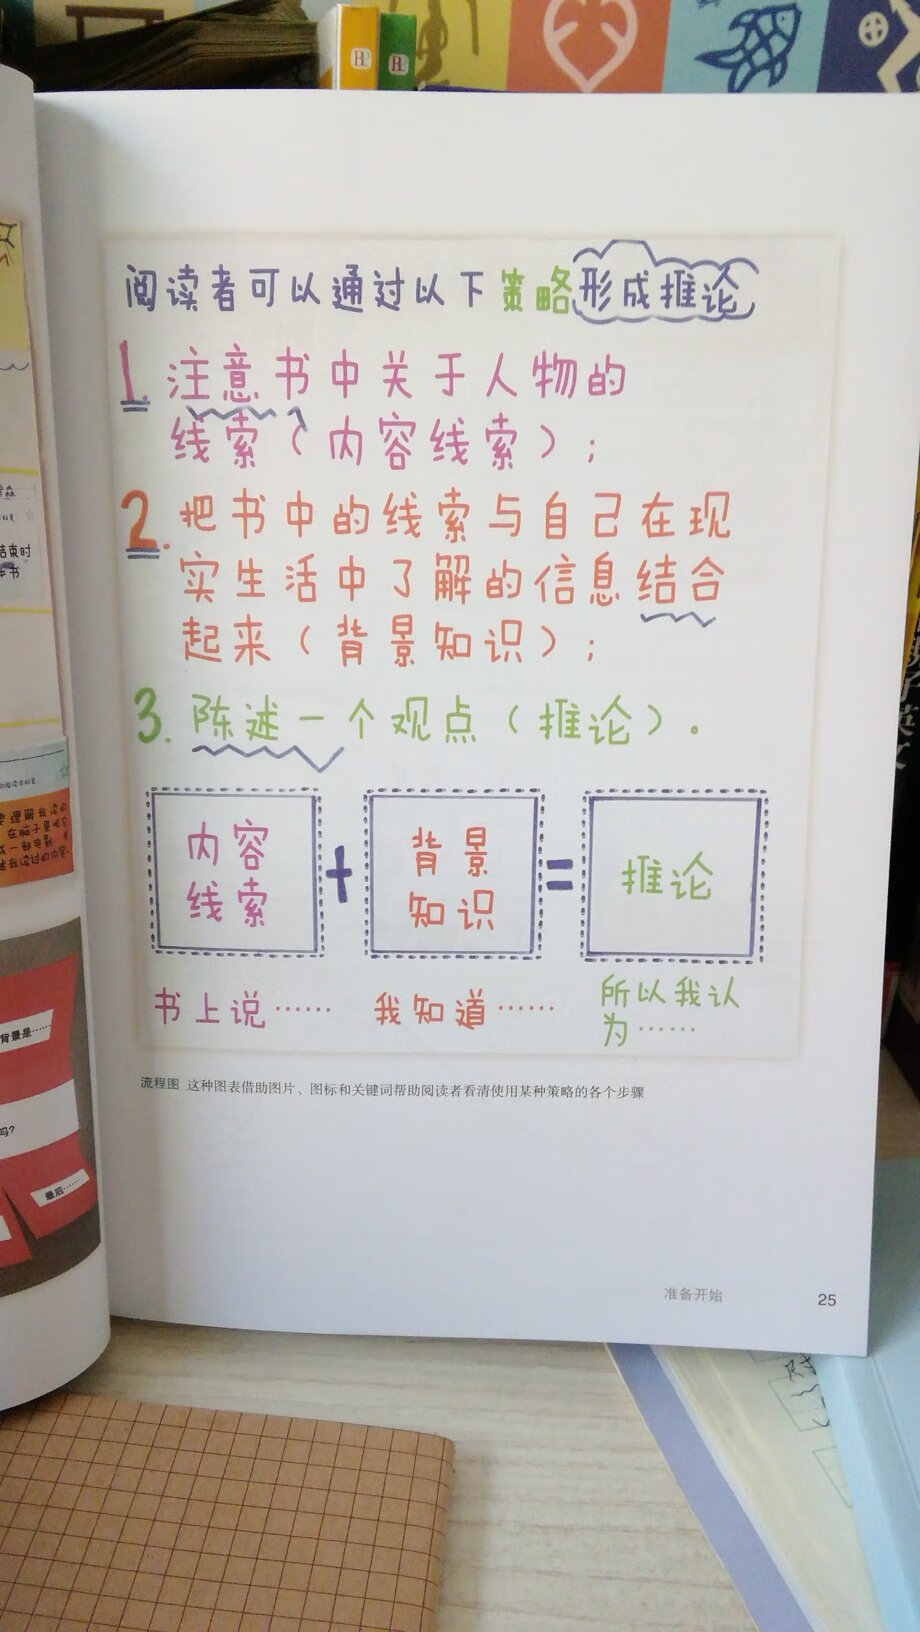 阅读者可以通过以下策略形成推论
1. 注意书中关于人物的
线索（内容线索）；
2. 把书中的线索与自己在现
实生活中了解的信息结合
起来（背景知识）；
3. 陈述一个观点（推论）。
内容
线索
+
背景
知识
=
推论
书上说……
我知道……
所以我认
为……
流程图 这种图表借助图片、图标和关键词帮助阅读者看清使用某种策略的各个步骤
准备开始
25
结束时
背景是……
吗?
最后……